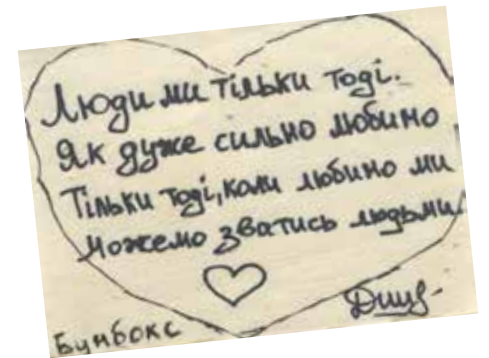 Люди ми тільки тоді.
Як дуже сильно любимо
Тільки тоді, коли любимо ми
Можемо зватись людьми.
Бумбокс